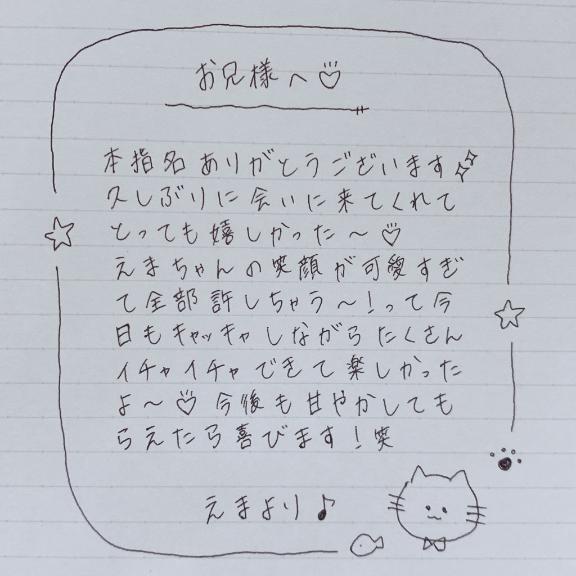 お兄様へ♡
本指名ありがとうございます✨
久しぶりに会いに来てくれて
とっても嬉しかった〜♡
えまちゃんの笑顔が可愛すぎ
て全部許しちゃう〜!って今
日もキャッキャしながらたくさん
イチャイチャできて楽しかった
よ〜♡今後も甘やかしても
らえたら喜びます!笑
えまより♪